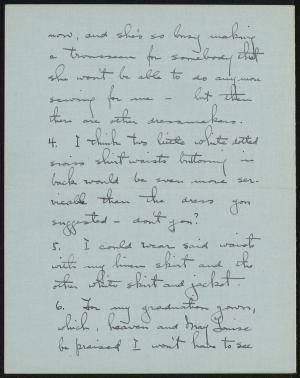 now, and she's so busy making
a trousseau for somebody that
she won't be able to do any more
sewing for me - but then
there are other dressmakers.
4. I think two little white dotted
swiss shirt waists buttoning in
back would be even more ser-
vicable than the dress you
suggested - don't you?
5. I could wear said waists
with my linen skirt and the
other white skirt and jacket
6. For my graduation gown,
which, heaven and May Louise
be praised I won't have to see